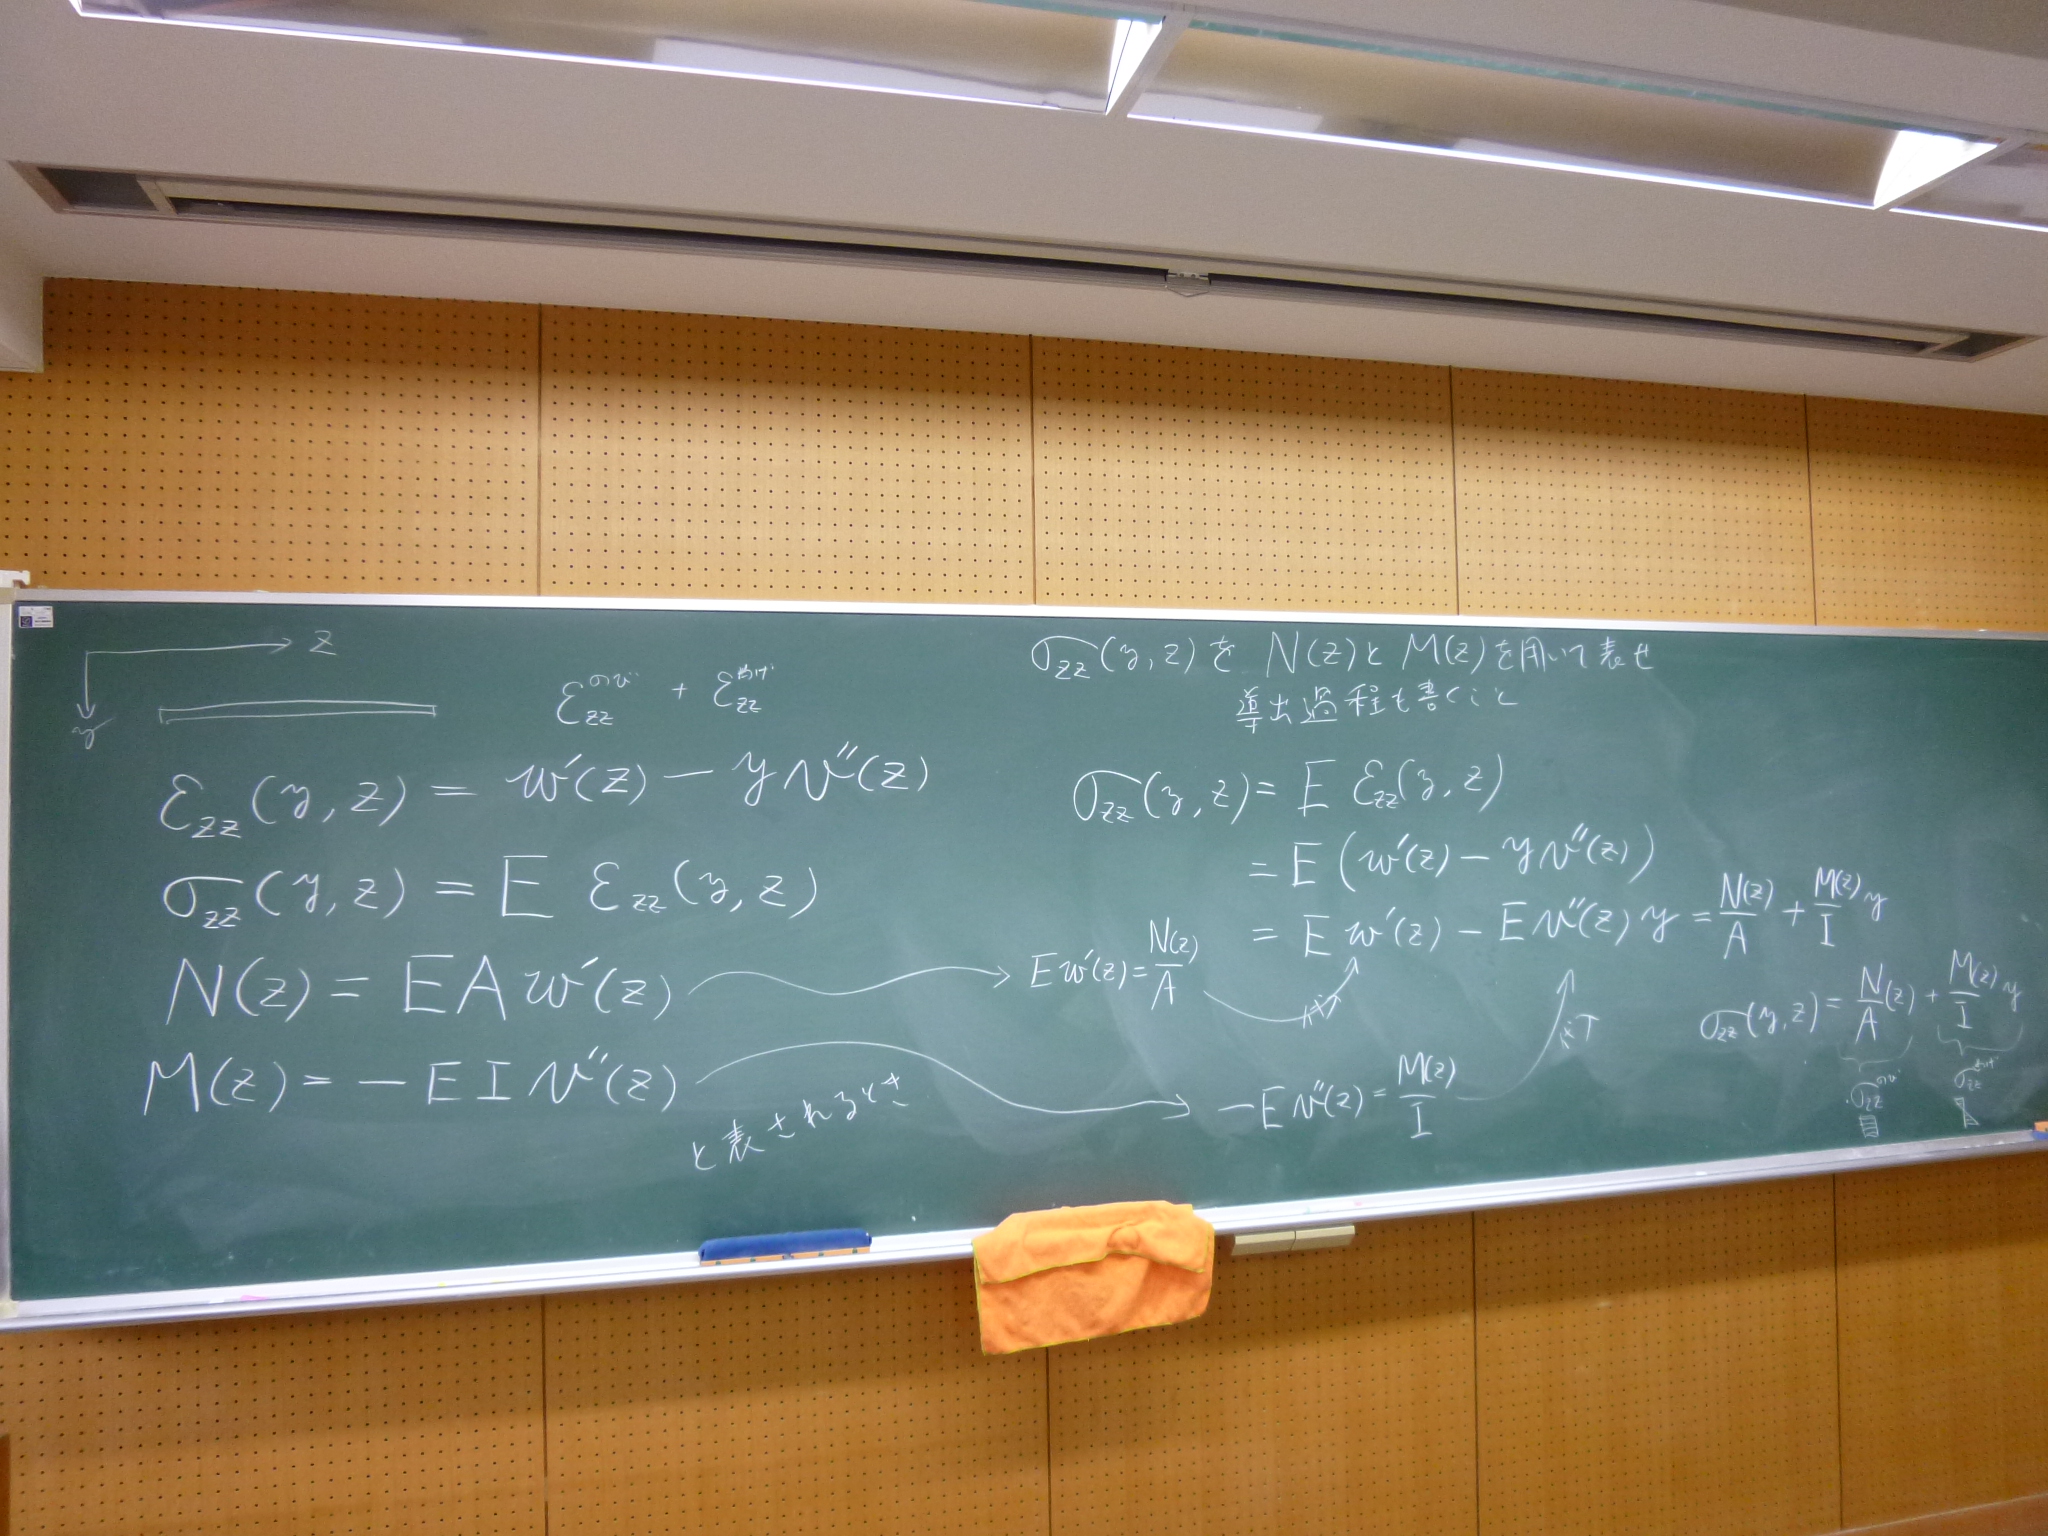 z
y
ε_zz^のび + ε_zz^曲げ
ε_zz(y, z) = w'(z) − y v''(z)
σ_zz(y, z) = E ε_zz(y, z)
N(z) = EA w'(z)
M(z) = − EI v''(z)
と表されるとき
σ_zz(y, z) を N(z) と M(z) を用いて表せ
導出過程も書くこと
σ_zz(y, z) = E ε_zz(y, z)
= E (w'(z) − y v''(z))
= E w'(z) − E v''(z) y = N(z)/A + M(z)/I y
E w'(z) = N(z)/A
代入
− E v''(z) = M(z)/I
代入
σ_zz(y, z) = N/A (z) + M(z)/I y
σ_zz^のび
σ_zz^曲げ